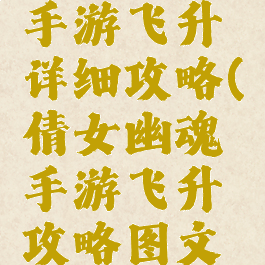 手游飞升
详细攻略(
倩女幽魂
手游飞升
攻略图文